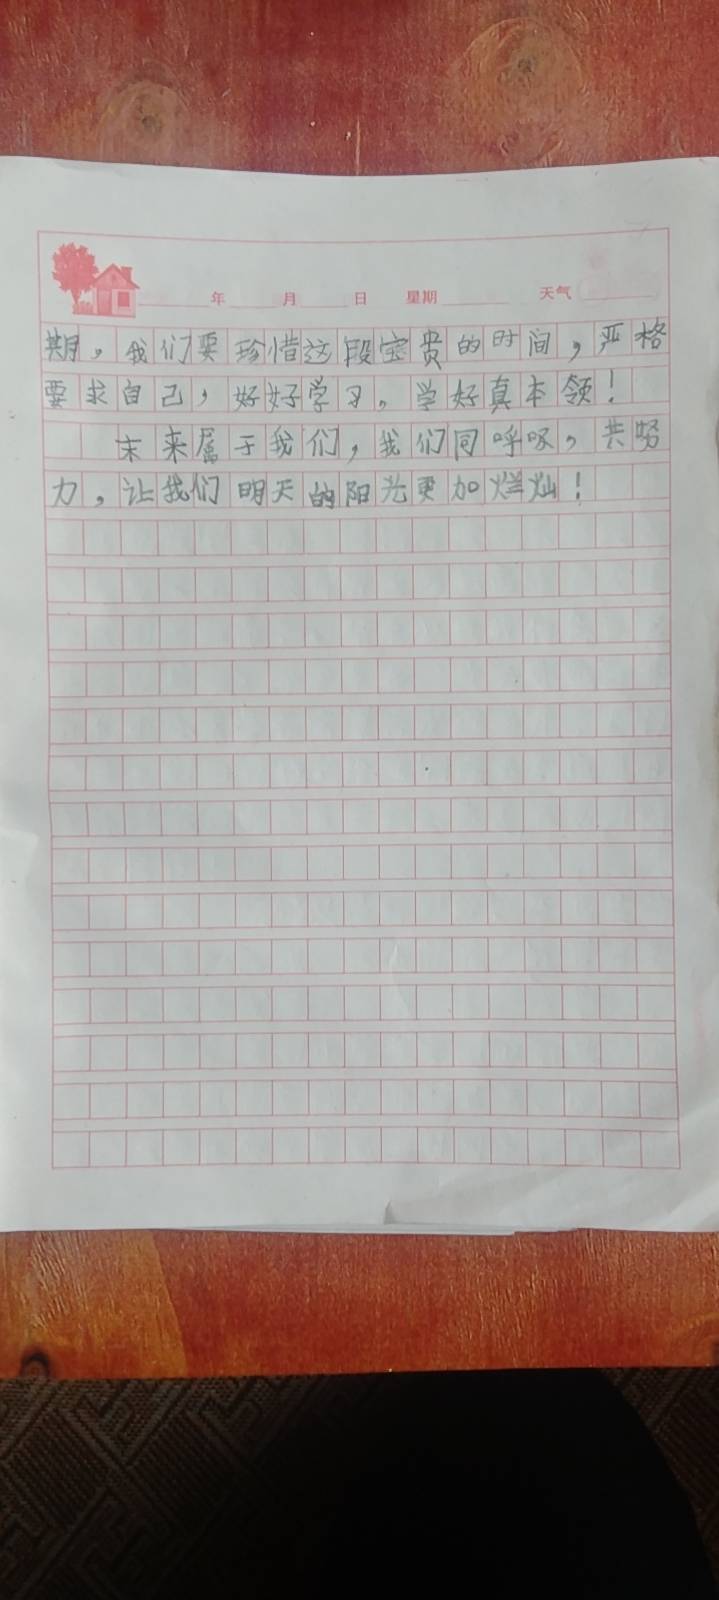 年 月 日 星期 天气
期，我们要珍惜这段宝贵的时间，严格
要求自己，好好学习。学好真本领！
末来属于我们，我们同呼吸，共努
力，让我们明天的阳光更加烂灿！